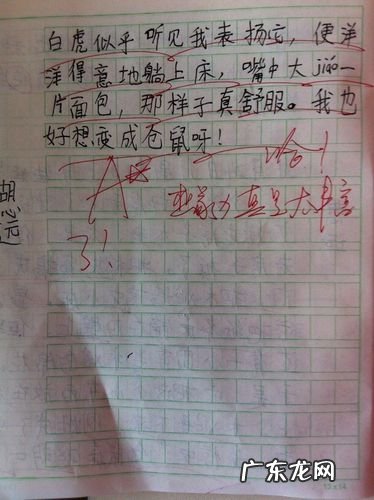 白虎似乎听见我表扬它，便洋
洋得意地躺上床，嘴中大jiáo一
片面包，那样子真舒服。我也
好想变成仓鼠呀！
A
哈！
想象力真是太丰富
了！
广东龙网
12×12